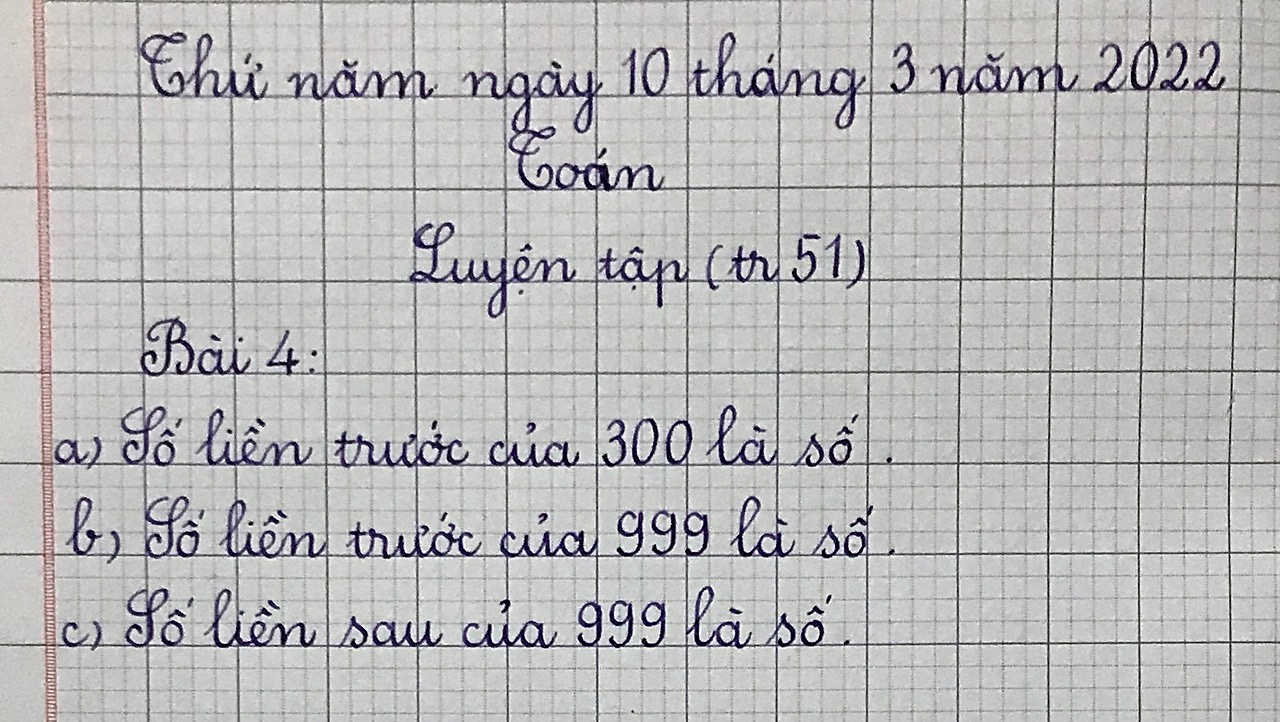 Thứ năm ngày 10 tháng 3 năm 2022
Toán
Luyện tập (tr 51)
Bài 4:
a) Số liền trước của 300 là số .
b) Số liền trước của 999 là số .
c) Số liền sau của 999 là số .